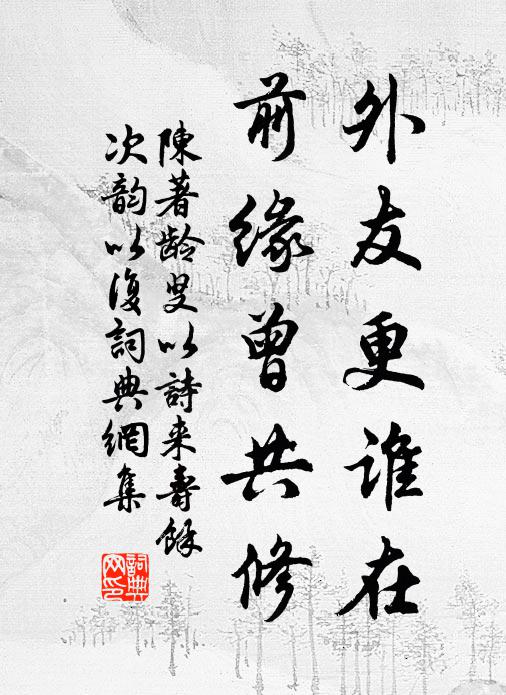 外友更谁在
前缘曾共修
陳著龄叟以詩来壽馀
次韵以復詞典網集
詞典
网印